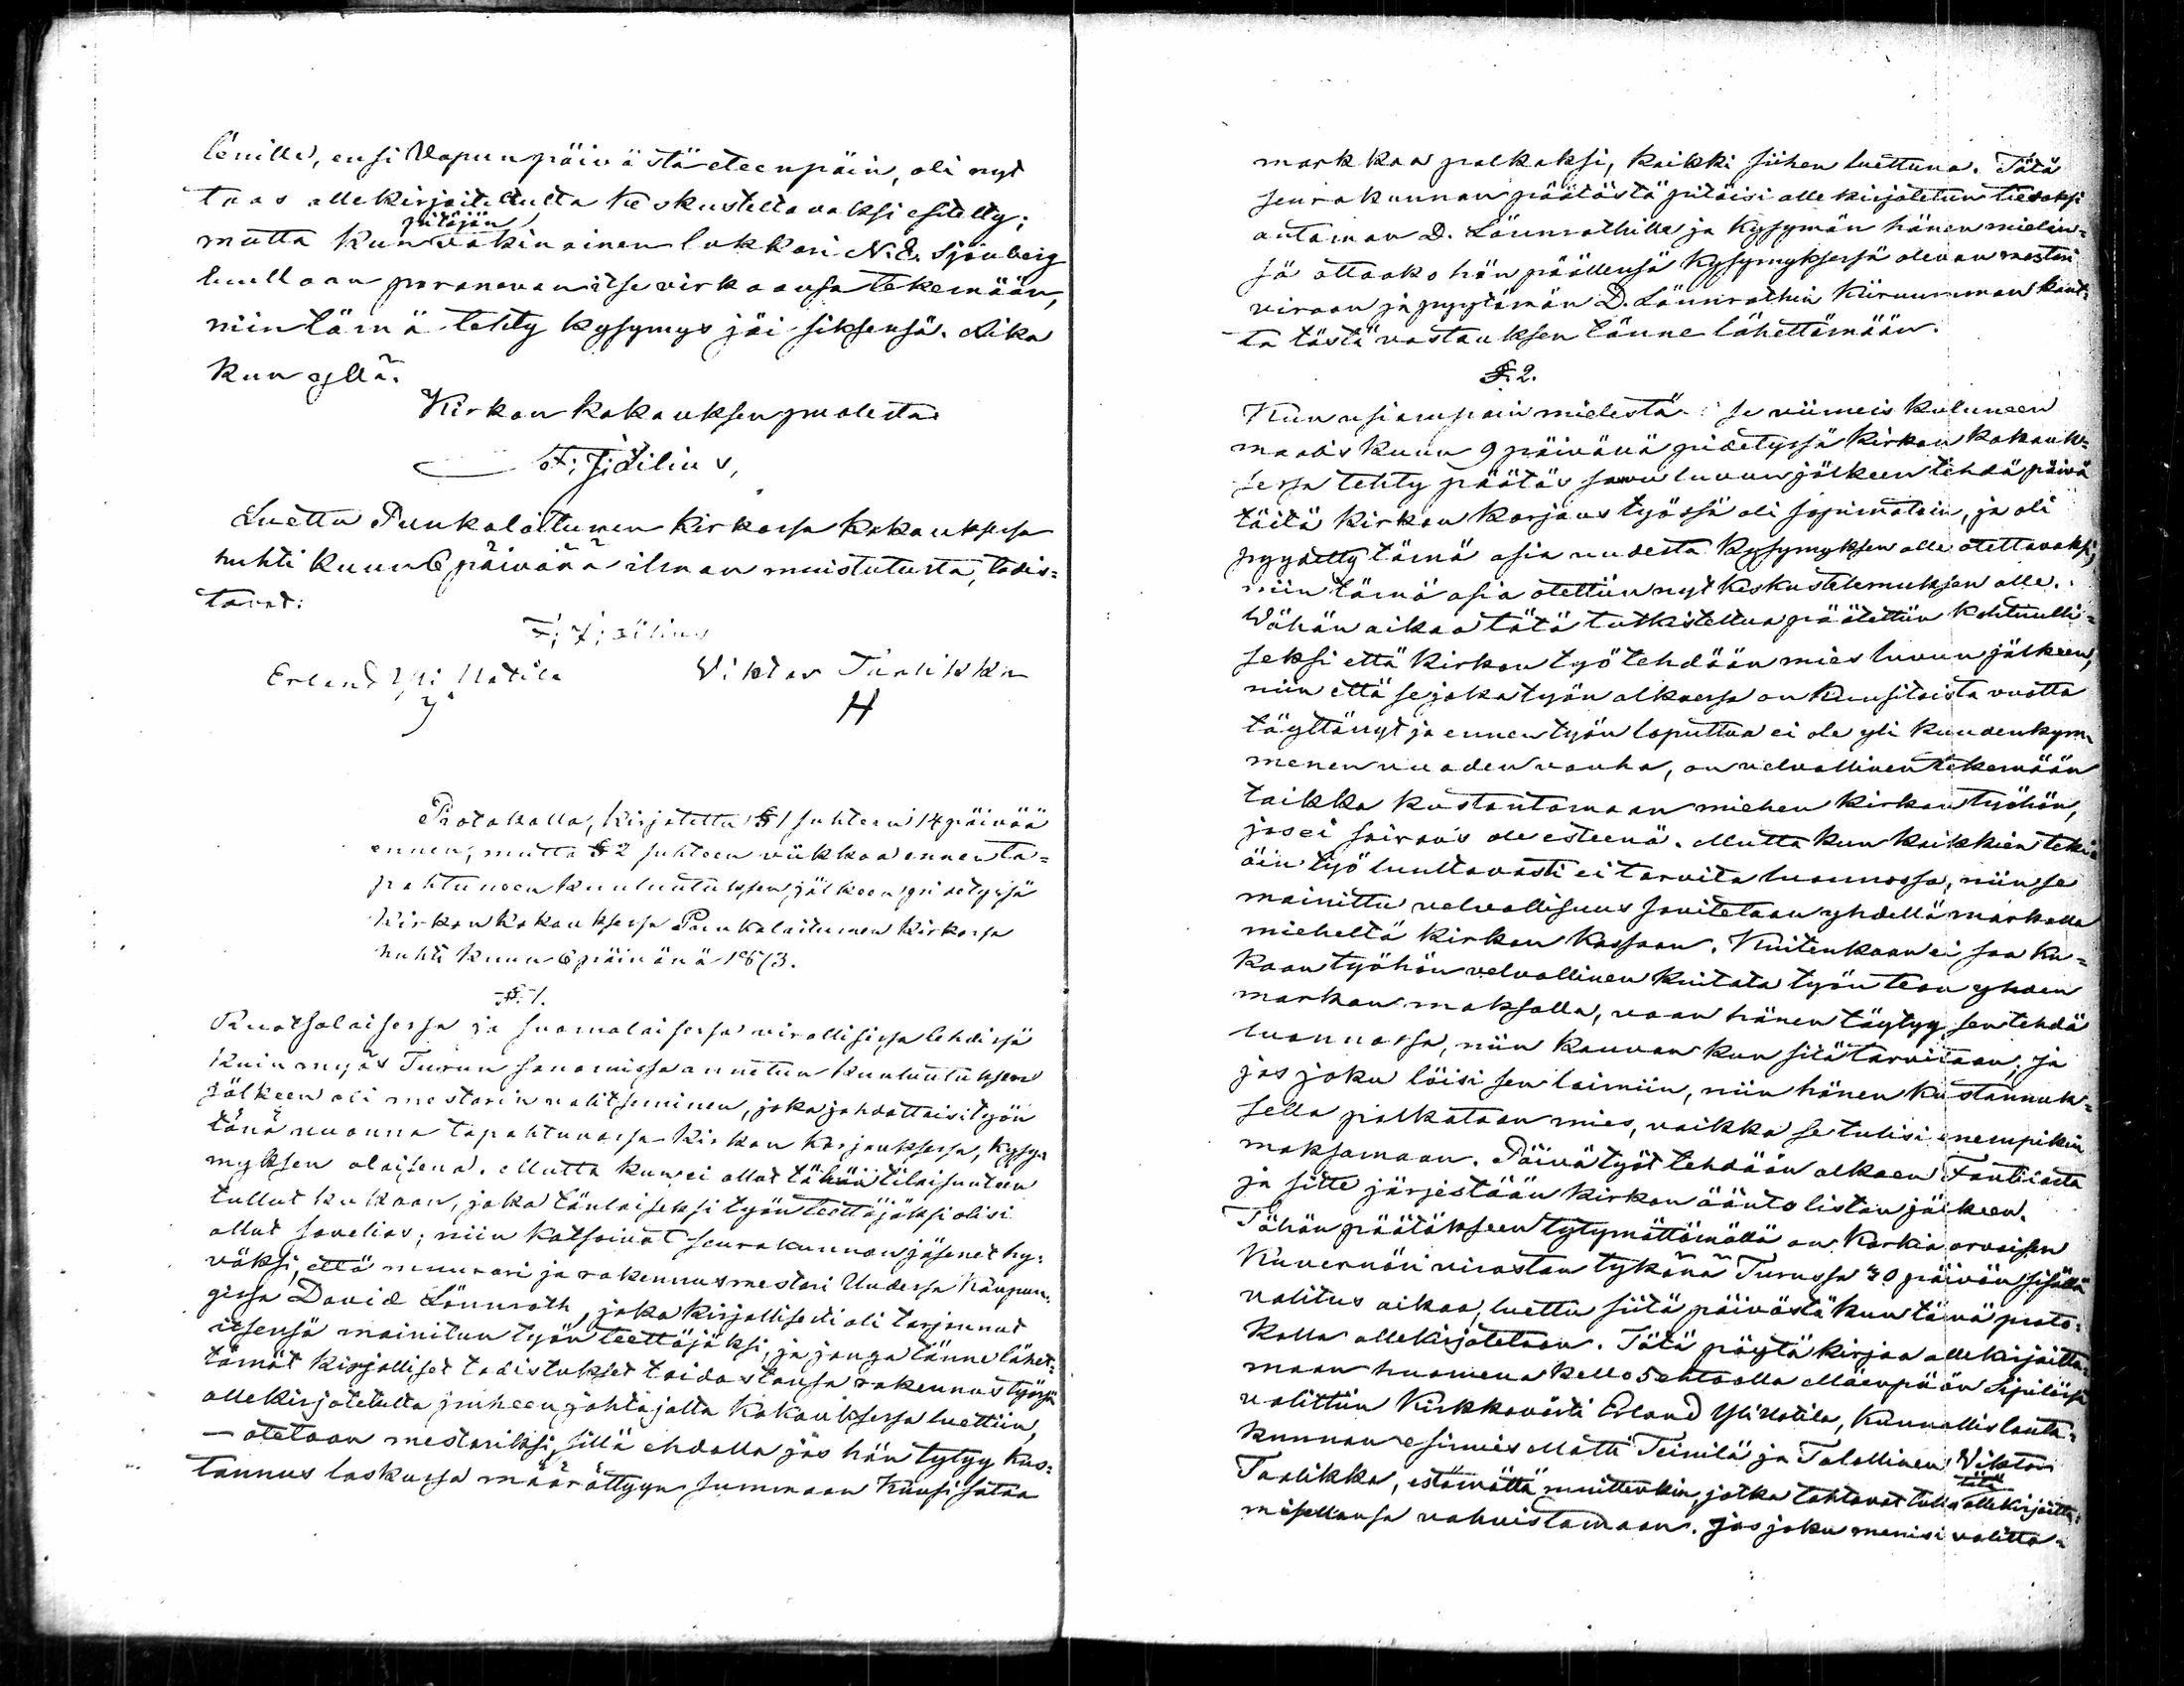 lenille, ensi Wapunpäivästä eteenpäin, oli nyt
taas allekirjoitetulta keskusteltavaksi esitetty;
pitäjän
mutta kun vakinainen lukkari N. E. Sjönberg
luullaan paranevan itse virkaansa tekemään,
niin tämä tehty kysymys jäi siksensä. Aika
kun yllä.
Kirkon kokouksen puolesta
F. J. Dilius,
Luettu Punkalaitumen kirkossa kokouksessa
huhti kuun 6 päivänä ilman muistutusta, todis=
tavat:
F. J. Dilius
Erland Yli Uotila Viktor Taalikka
Protokolla, kirjotettu § 1 suhteen 14 päivää
ennen, mutta § 2 suhteen viikkoa ennen ta=
pahtuneen kuuluutuksen jälkeen pidetyssä
Kirkon kokouksessa Punkalaitumen kirkossa
huhti kuun 6 päivänä 1873.
§. 1.
Ruotsalaisessa ja suomalaisessa virallisissa lehdissä
kuin myös Turun sanomissa annetun kuuluutuksen
jälkeen oli mestarin valitseminen, joka johdattaisi työn
tänä vuonna tapahtuvassa kirkon korjauksessa, kysy=
myksen alaisena. Mutta kun ei ollut tähän tilaisuuteen
tullut kukaan, joka tänlaiseksi työn teettäjäksi olisi
ollut sovelias; niin katsoivat seurakunnan jäsenet hy=
väksi, että muurari ja rakennusmestari Uudessa kaupun=
gissa David Lönnroth, joka kirjallisesti oli tarjonnut
itsensä mainitun työn teettäjäksi, ja jonga tänne lähet=
tämät kirjalliset todistukset taidostansa rakennustyössä
allekirjotetulta puheenjohtajalta kokouksessa luettiin,
— otetaan mestariksi, sillä ehdolla jos hän tytyy kus=
tannus laskussa määrättyyn summaan kuusi sataa
markkaa palkaksi, kaikki siihen luettuna. Tätä
seurakunnan päätöstä pitäisi allekirjotetun tiedoksi
antaman D. Lönnrothille ja kysymän hänen mielen=
sä ottaako hän päällensä kysymyksessä olevan mestari
viraan ja pyytämän D. Lönnrothin kiiruumman kaut=
ta tästä vastauksen tänne lähettämään.
§. 2.
Kun usiampain mielestä se viimeis kuluneen
maalis kuun 9 päivänä pidetyssä kirkon kokouk=
sessa tehty päätös savu luvun jälkeen tehdä päivä
töitä kirkon korjaus työssä oli sopimatoin, ja oli
pyydetty tämä asia uudesta kysymyksen alle otettavaksi,
niin tämä asia otettiin nyt keskustelemuksen alle.
Wähän aikaa tätä tutkisteltua päätettiin kohtuulli=
seksi että kirkon työ tehdään miesluvun jälkeen,
niin että se joka työn alkaessa on kuusitoista vuotta
täyttänyt ja ennen työn loputtua ei ole yli kuudenkym=
menen vuoden vanha, on velvollinen tekemään
taikka kustantamaan miehen kirkon työhön,
jos ei sairaus ole esteenä. Mutta kun kaikkien teki=
äin työ luultavasti ei tarvita luonnossa, niin se
mainittu velvollisuus sovitetaan yhdellä markalla
mieheltä kirkon kassaan. Kuitenkaan ei saa ku=
kaan työhön velvollinen kuitata työn teon yhden
markan maksolla, vaan hänen täytyy sen tehdä
luonnossa, niin kauvan kun sitä tarvitaan; ja
jos joku löisi sen laimiin, niin hänen kustannuk=
sella palkataan mies, vaikka se tulisi enempikin
maksamaan. Päivätyöt tehdään alkaen Fantiasta
ja sitte järjestään kirkon ääntö listan jälkeen.
Tähän päätökseen tytymättömällä on korkia arvoisen
Kuvernöri viraston tykönä Turussa 30 päivän sisällä
valitus aikaa, luettu siitä päivästä kun tämä proto=
kolla allekirjotetaan. Tätä pöytäkirjaa allekirjoitta=
maan huomena kello 5 ehtoolla Mäenpään Sipilässä
valittiin Kirkkovärti Erland Yli Uotila, Kunnallislauta=
kunnan esimies Matti Teinilä ja Talollinen Viktor
Taalikka, estämättä muittenkin, jotka tahtovat tulla tätä allekirjoitta=
misellansa vahvistamaan. Jos joku menisi valitta=